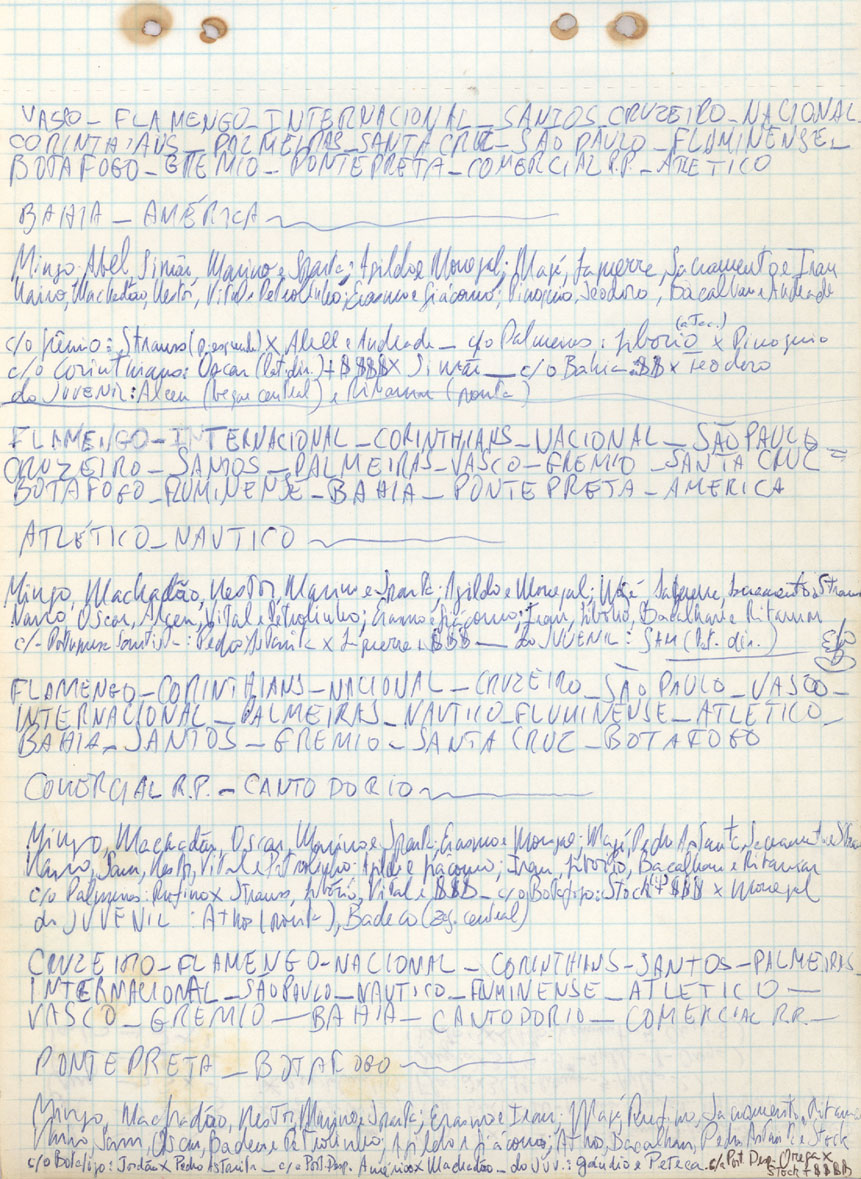 VASCO_ FLAMENGO_INTERNACIONAL_SANTOS_CRUZEIRO_NACIONAL
CORINTHIANS_ PALMEIRAS_SANTA CRUZ_SÃO PAULO_FLUMINENSE_
BOTAFOGO_GREMIO_ PONTE PRETA_COMERCIAL R.P._ATLETICO
BAHIA_AMÉRICA
Mingo Abel, Simão, Marino e Spark; Agildo e Monegal; Majé, Lapierre, Sacramento e Iran
Machadão, Nestor, Vital e Petrolinho; Erasmo e Giácomo; Pinoquio, Teodoro, Bacalhau e Andrade
c/o Grêmio: Strauss X Abel e Andrade_ c/o Palmeiras: Liborio x Pinoquio
c/o Corinthians: Oscar (lat. dir.) + $$$ X Simão_ c/o Bahia $$ x Teodoro
do JUVENIL: Alcen (beque central) e Ritamar (ponta)
FLAMENGO-INTERNACIONAL_CORINTHIANS_NACIONAL_SÃO PAULO_
CRUZEIRO_SANTOS_PALMEIRAS_VASCO_GREMIO_SANTA CRUZ=
BOTAFOGO_FLUMINENSE_BAHIA_PONTE PRETA_AMERICA
ATLÉTICO_NAUTICO
Mingo, Machadão, Nestor, Marino e Spark; Agildo e Monegal; Majé, Lapierre, Sacramento, Strauss
Oscar, Alcen, Vital e Petrolinho; Erasmo e Giácomo; Iran, Liborio, Bacalhau e Ritamar
c/- Portuguesa Santista_: Pedro Astarita x Lapierre + $$$_ do JUVENIL: SAM (lat. dir.)
FLAMENGO_CORINTHIANS_NACIONAL_CRUZEIRO_SÃO PAULO_VASCO_
INTERNACIONAL_PALMEIRAS_NAUTICO_FLUMINENSE_ATLETICO_
BAHIA_SANTOS_GREMIO_SANTA CRUZ_BOTAFOGO
COMERCIAL R.P._CANTO DO RIO
Mingo, Machadão, Oscar, Marino e Spark; Erasmo e Monegal; Majé, Pedro Astarita, Sacramento e Strauss
Sam, Nestor, Vital e Petrolinho; Agildo e Giácomo; Iran, Liborio, Bacalhau e Ritamar
c/o Palmeiras: Rufino x Strauss, Liborio, Vital e $$$_ c/o Botafogo: Stock + $$$ x Monegal
do JUVENIL: Atho (ponta), Badeco (zag. central)
CRUZEIRO-FLAMENGO-NACIONAL_CORINTHIANS-SANTOS-PALMEIRAS_
INTERNACIONAL_SÃO PAULO_NAUTICO_FLUMINENSE_ATLETICO_
VASCO_GREMIO_BAHIA_CANTO DO RIO_COMERCIAL R.P._
PONTE PRETA_BOTAFOGO
Mingo, Machadão, Nestor, Marino e Spark; Erasmo e Iran; Majé, Rufino, Sacramento, Ritamar
Sam, Oscar, Badeco e Petrolinho; Agildo e Giácomo; Atho, Bacalhau, Pedro Astarita e Stock
c/o Botafogo: Jordão x Pedro Astarita_ c/o Port. Desp. Américo x Machadão_ do Juv.: Gaudio e Peteca. c/a Port Desp. Ortega x
Stock + $$$$